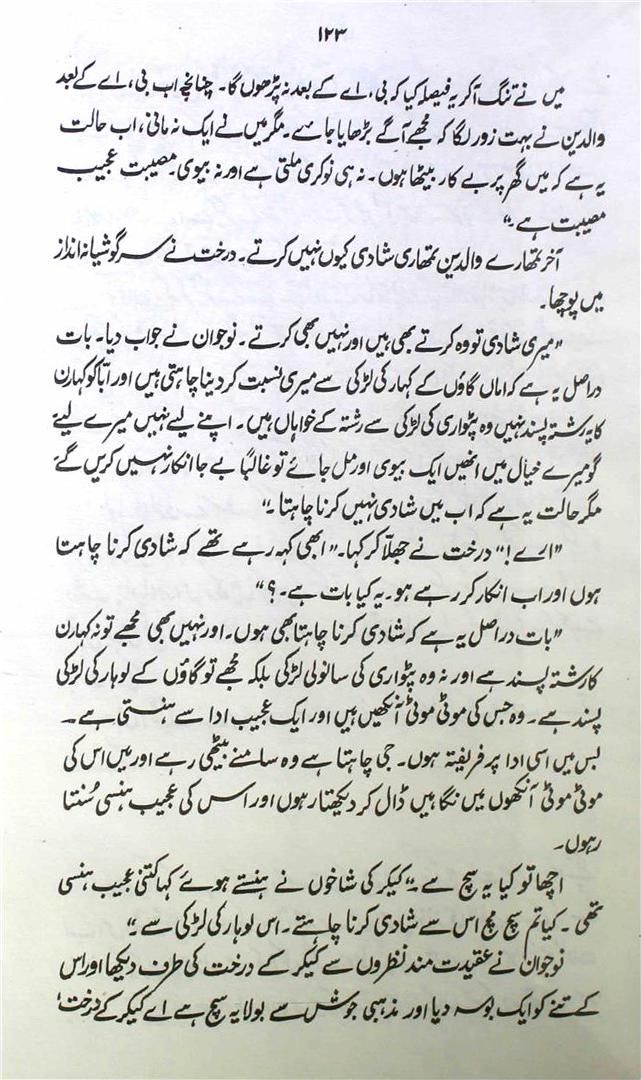 ۱۲۳
میں نے تنگ آکر یہ فیصلہ کیا کہ بی، اے کے بعد نہ پڑھوں گا۔ چنانچہ اب بی، اے کے بعد
والدین نے بہت زور لگا کہ مجھے آگے بڑھایا جائے۔ مگر میں نے ایک نہ مانی، اب حالت
یہ ہے کہ میں گھر پر بے کار بیٹھا ہوں۔ نہ ہی نوکری ملتی ہے اور نہ بیوی۔ مصیبت عجیب
مصیبت ہے۔"
آخر تمھارے والدین تمھاری شادی کیوں نہیں کرتے۔ درخت نے سرگوشیانہ انداز
میں پوچھا۔
"میری شادی تو وہ کرتے بھی ہیں اور نہیں بھی کرتے۔ نوجوان نے جواب دیا۔ بات
دراصل یہ ہے کہ اماں گاؤں کے کہار کی لڑکی سے میری نسبت کر دینا چاہتی ہیں اور ابّا کو کہارن
کا یہ رشتہ پسند نہیں وہ پٹواری کی لڑکی سے رشتہ کے خواہاں ہیں۔ اپنے لیے نہیں میرے لیے
گو میرے خیال میں انھیں ایک بیوی اور مل جائے تو غالباً بے جا انکار نہیں کریں گے
مگر حالت یہ ہے کہ اب میں شادی نہیں کرنا چاہتا۔"
"ارے!" درخت نے جھلّا کر کہا۔ "ابھی کہہ رہے تھے کہ شادی کرنا چاہتا
ہوں اور اب انکار کر رہے ہو۔ یہ کیا بات ہے۔؟"
"بات دراصل یہ ہے کہ شادی کرنا چاہتا بھی ہوں۔ اور نہیں بھی مجھے تو نہ کہارن
کا رشتہ پسند ہے اور نہ وہ پٹواری کی سانولی لڑکی بلکہ مجھے تو گاؤں کے لوہار کی لڑکی
پسند ہے۔ وہ جس کی موٹی موٹی آنکھیں ہیں اور ایک عجیب ادا سے ہنستی ہے۔
بس میں اسی ادا پر فریفتہ ہوں۔ جی چاہتا ہے وہ سامنے بیٹھی رہے اور میں اس کی
موٹی موٹی آنکھوں میں نگاہیں ڈال کر دیکھتا رہوں اور اس کی عجیب ہنسی سُنتا
رہوں۔
اچھا تو کیا یہ سچ ہے۔" کیکر کی شاخوں نے ہنستے ہوئے کہا کتنی عجیب ہنسی
تھی۔ کیا تم سچ مچ اس سے شادی کرنا چاہتے۔ اس لوہار کی لڑکی سے۔"
نوجوان نے عقیدت مند نظروں سے کیکر کے درخت کی طرف دیکھا اور اس
کے تنے کو ایک بوسہ دیا اور مذہبی جوش سے بولا یہ سچ ہے اے کیکر کے درخت'